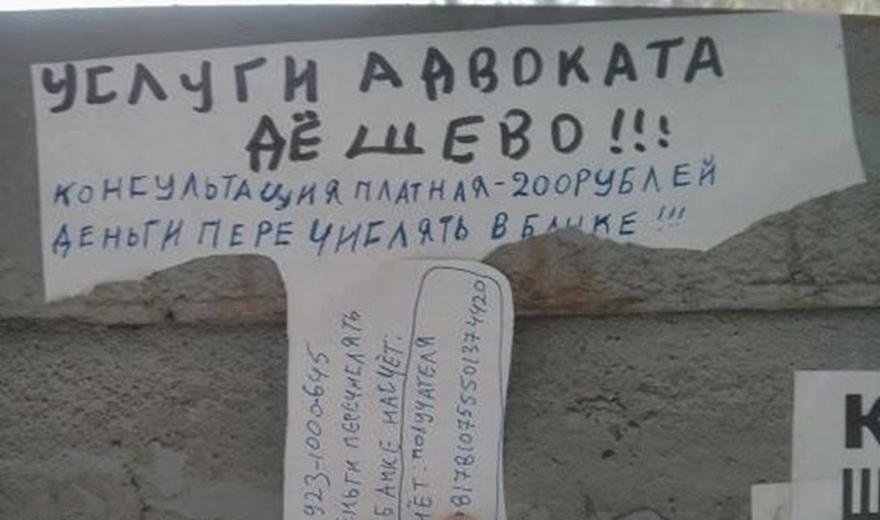 УСЛУГИ АДВОКАТА
ДЁШЕВО!!!
КОНСУЛЬТАЦИЯ ПЛАТНАЯ-200РУБЛЕЙ
ДЕНЬГИ ПЕРЕЧИСЛЯТЬ В БАНКЕ!!!
923-1000-645
НЬГИ ПЕРЕЧИСЛЯТЬ
БАНКЕ НАСЧЁТ:
ЧЁТ: ПОЛУЧАТЕЛЯ
817810755501374920
К
Ш